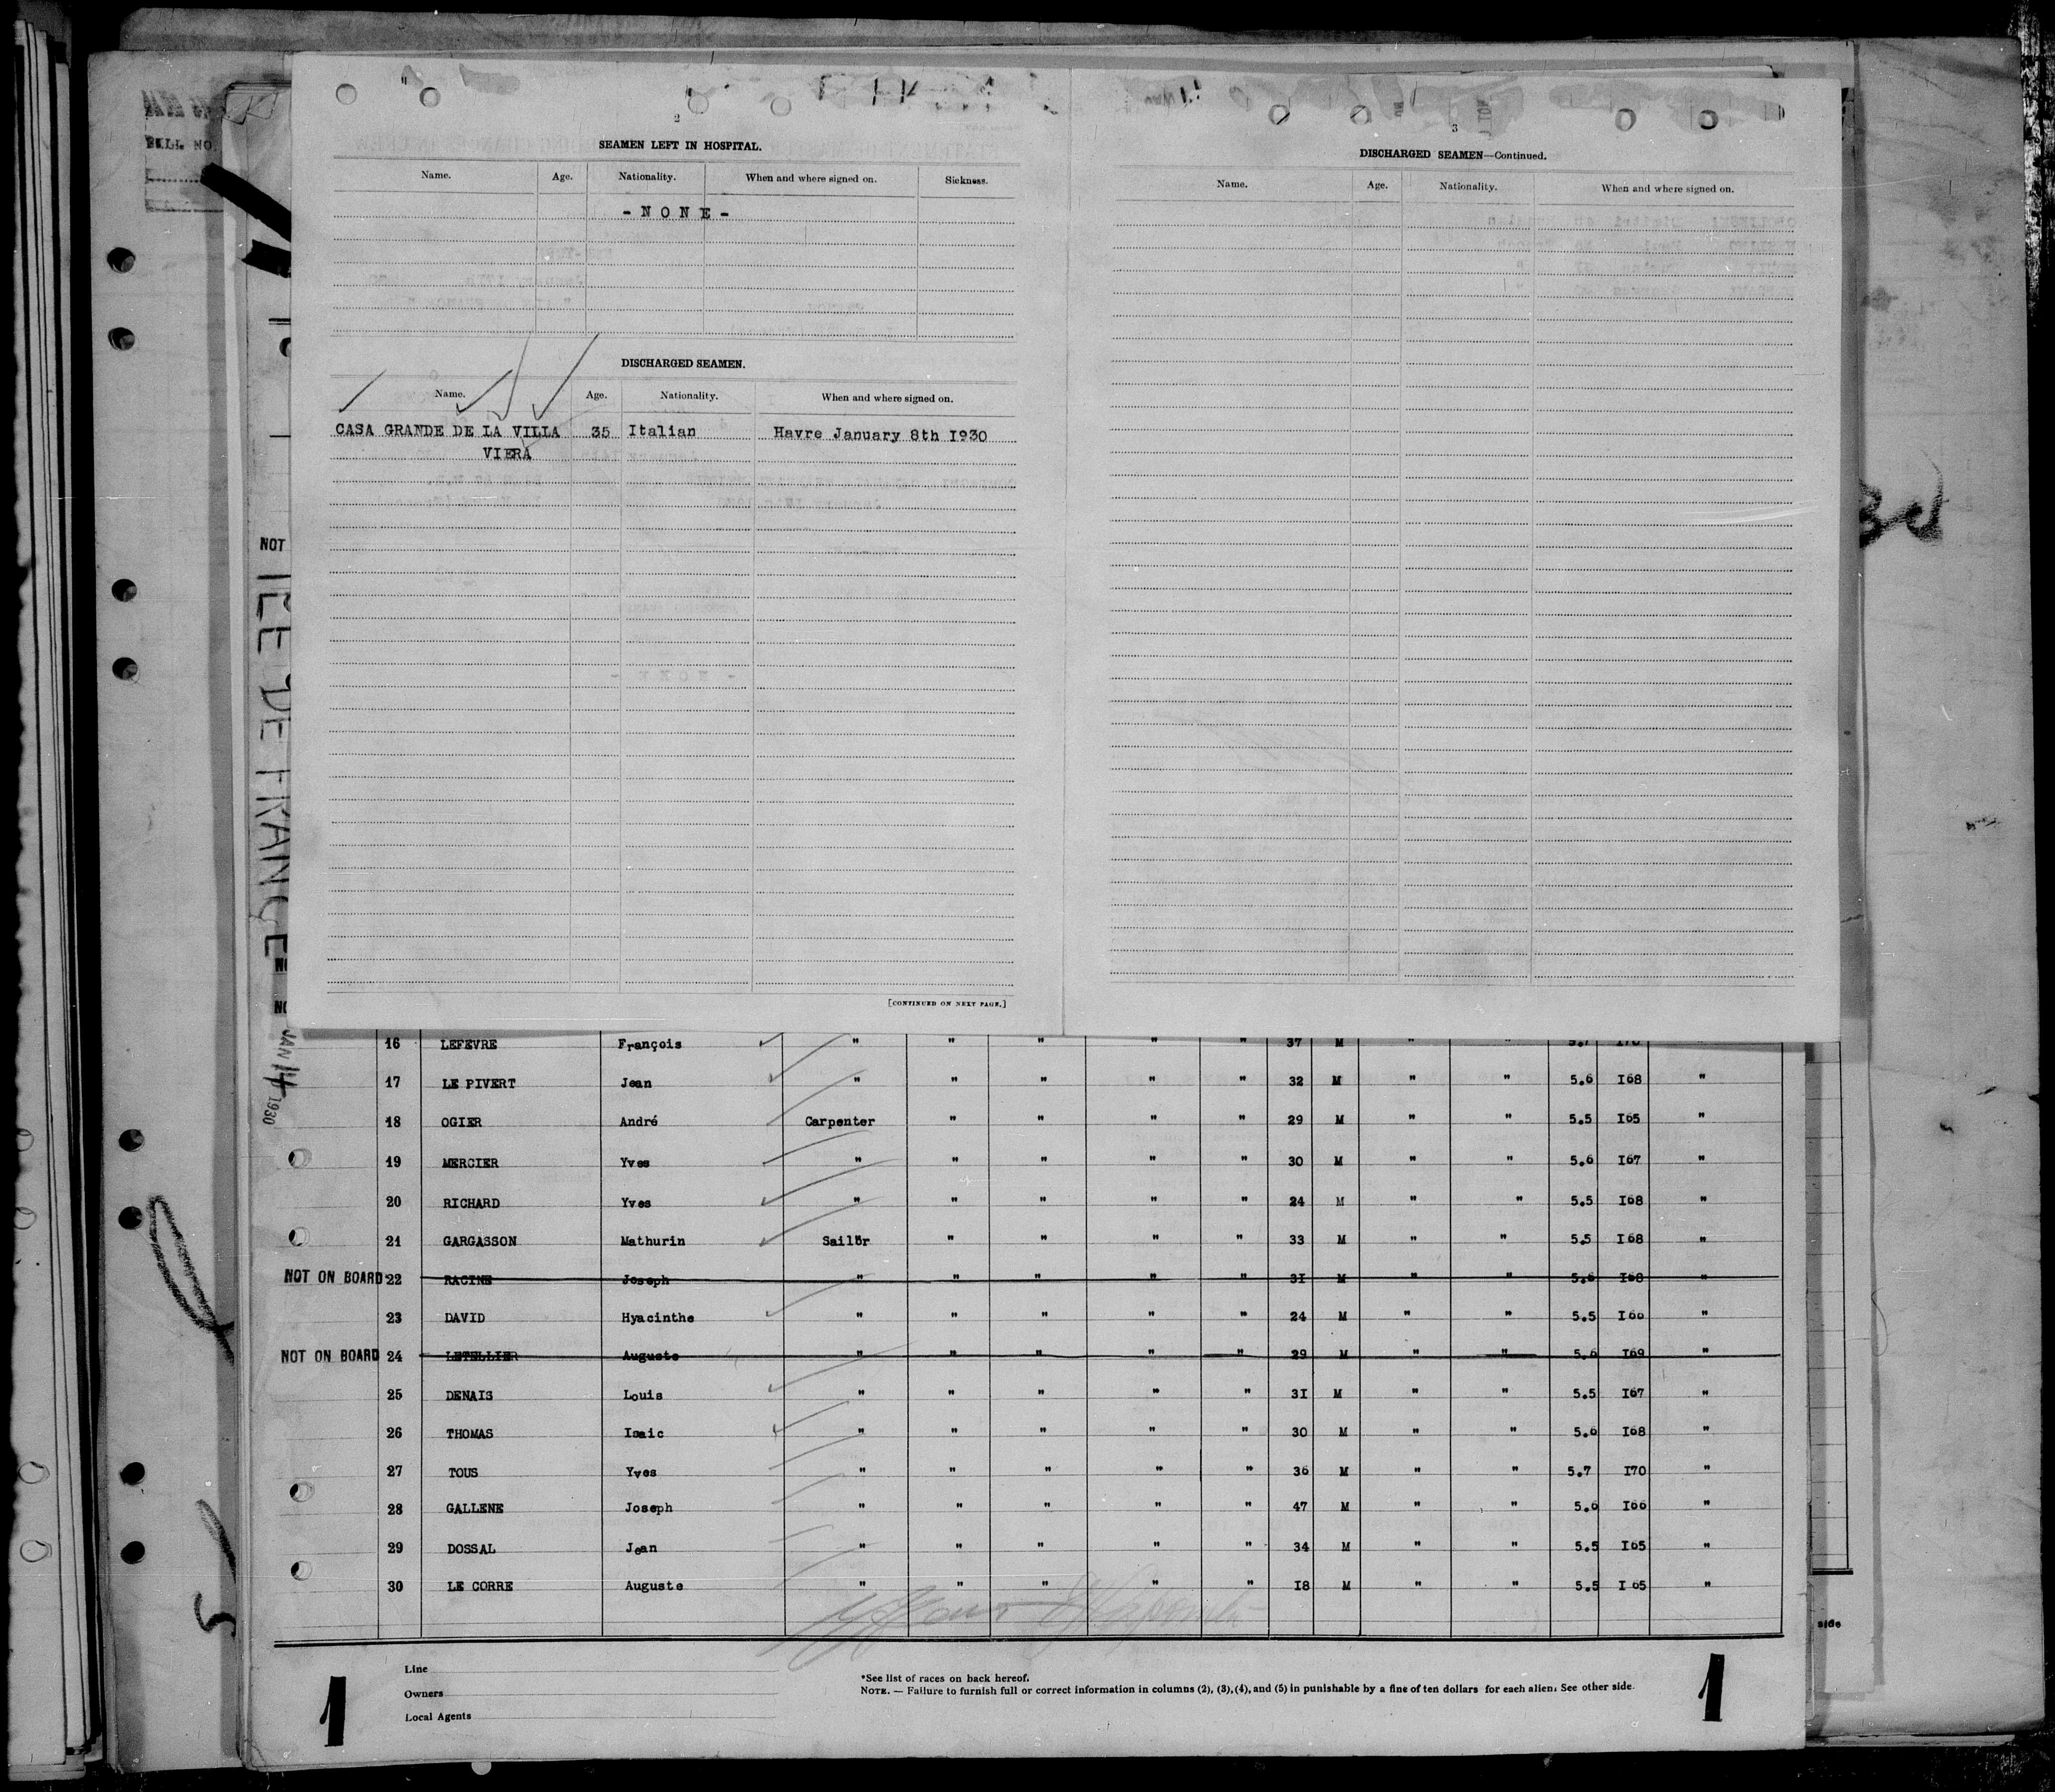 2
SEAMEN LEFT IN HOSPITAL.
Name. Age. Nationality. When and where signed on. Sickness.
- N O N E -
DISCHARGED SEAMEN.
Name. Age. Nationality. When and where signed on.
CASA GRANDE DE LA VILLA 35 Italian Havre January 8th I930
VIERA
[CONTINUED ON NEXT PAGE.]
3
DISCHARGED SEAMEN—Continued.
Name. Age. Nationality. When and where signed on.
NOT
ILE DE FRANCE
JAN 14 1930
16 LEFEVRE François " " " " " 37 M " " 5.7 I70 "
17 LE PIVERT Jean " " " " " 32 M " " 5.6 I68 "
18 OGIER André Carpenter " " " " 29 M " " 5.5 I65 "
19 MERCIER Yves " " " " " 30 M " " 5.6 I67 "
20 RICHARD Yves " " " " " 24 M " " 5.5 I68 "
21 GARGASSON Mathurin Sailor " " " " 33 M " " 5.5 I68 "
NOT ON BOARD 22 RACINE Joseph " " " " " 3I M " " 5.6 I68 "
23 DAVID Hyacinthe " " " " " 24 M " " 5.5 I66 "
NOT ON BOARD 24 LETELLIER Auguste " " " " " 29 M " " 5.6 I69 "
25 DENAIS Louis " " " " " 3I M " " 5.5 I67 "
26 THOMAS Isaic " " " " " 30 M " " 5.6 I68 "
27 TOUS Yves " " " " " 36 M " " 5.7 I70 "
28 GALLENE Joseph " " " " " 47 M " " 5.6 I66 "
29 DOSSAL Jean " " " " " 34 M " " 5.5 I65 "
30 LE CORRE Auguste " " " " " I8 M " " 5.5 I65 "
side
Line
Owners
Local Agents
*See list of races on back hereof.
NOTE. — Failure to furnish full or correct information in columns (2), (3), (4), and (5) in punishable by a fine of ten dollars for each alien. See other side.
1
1